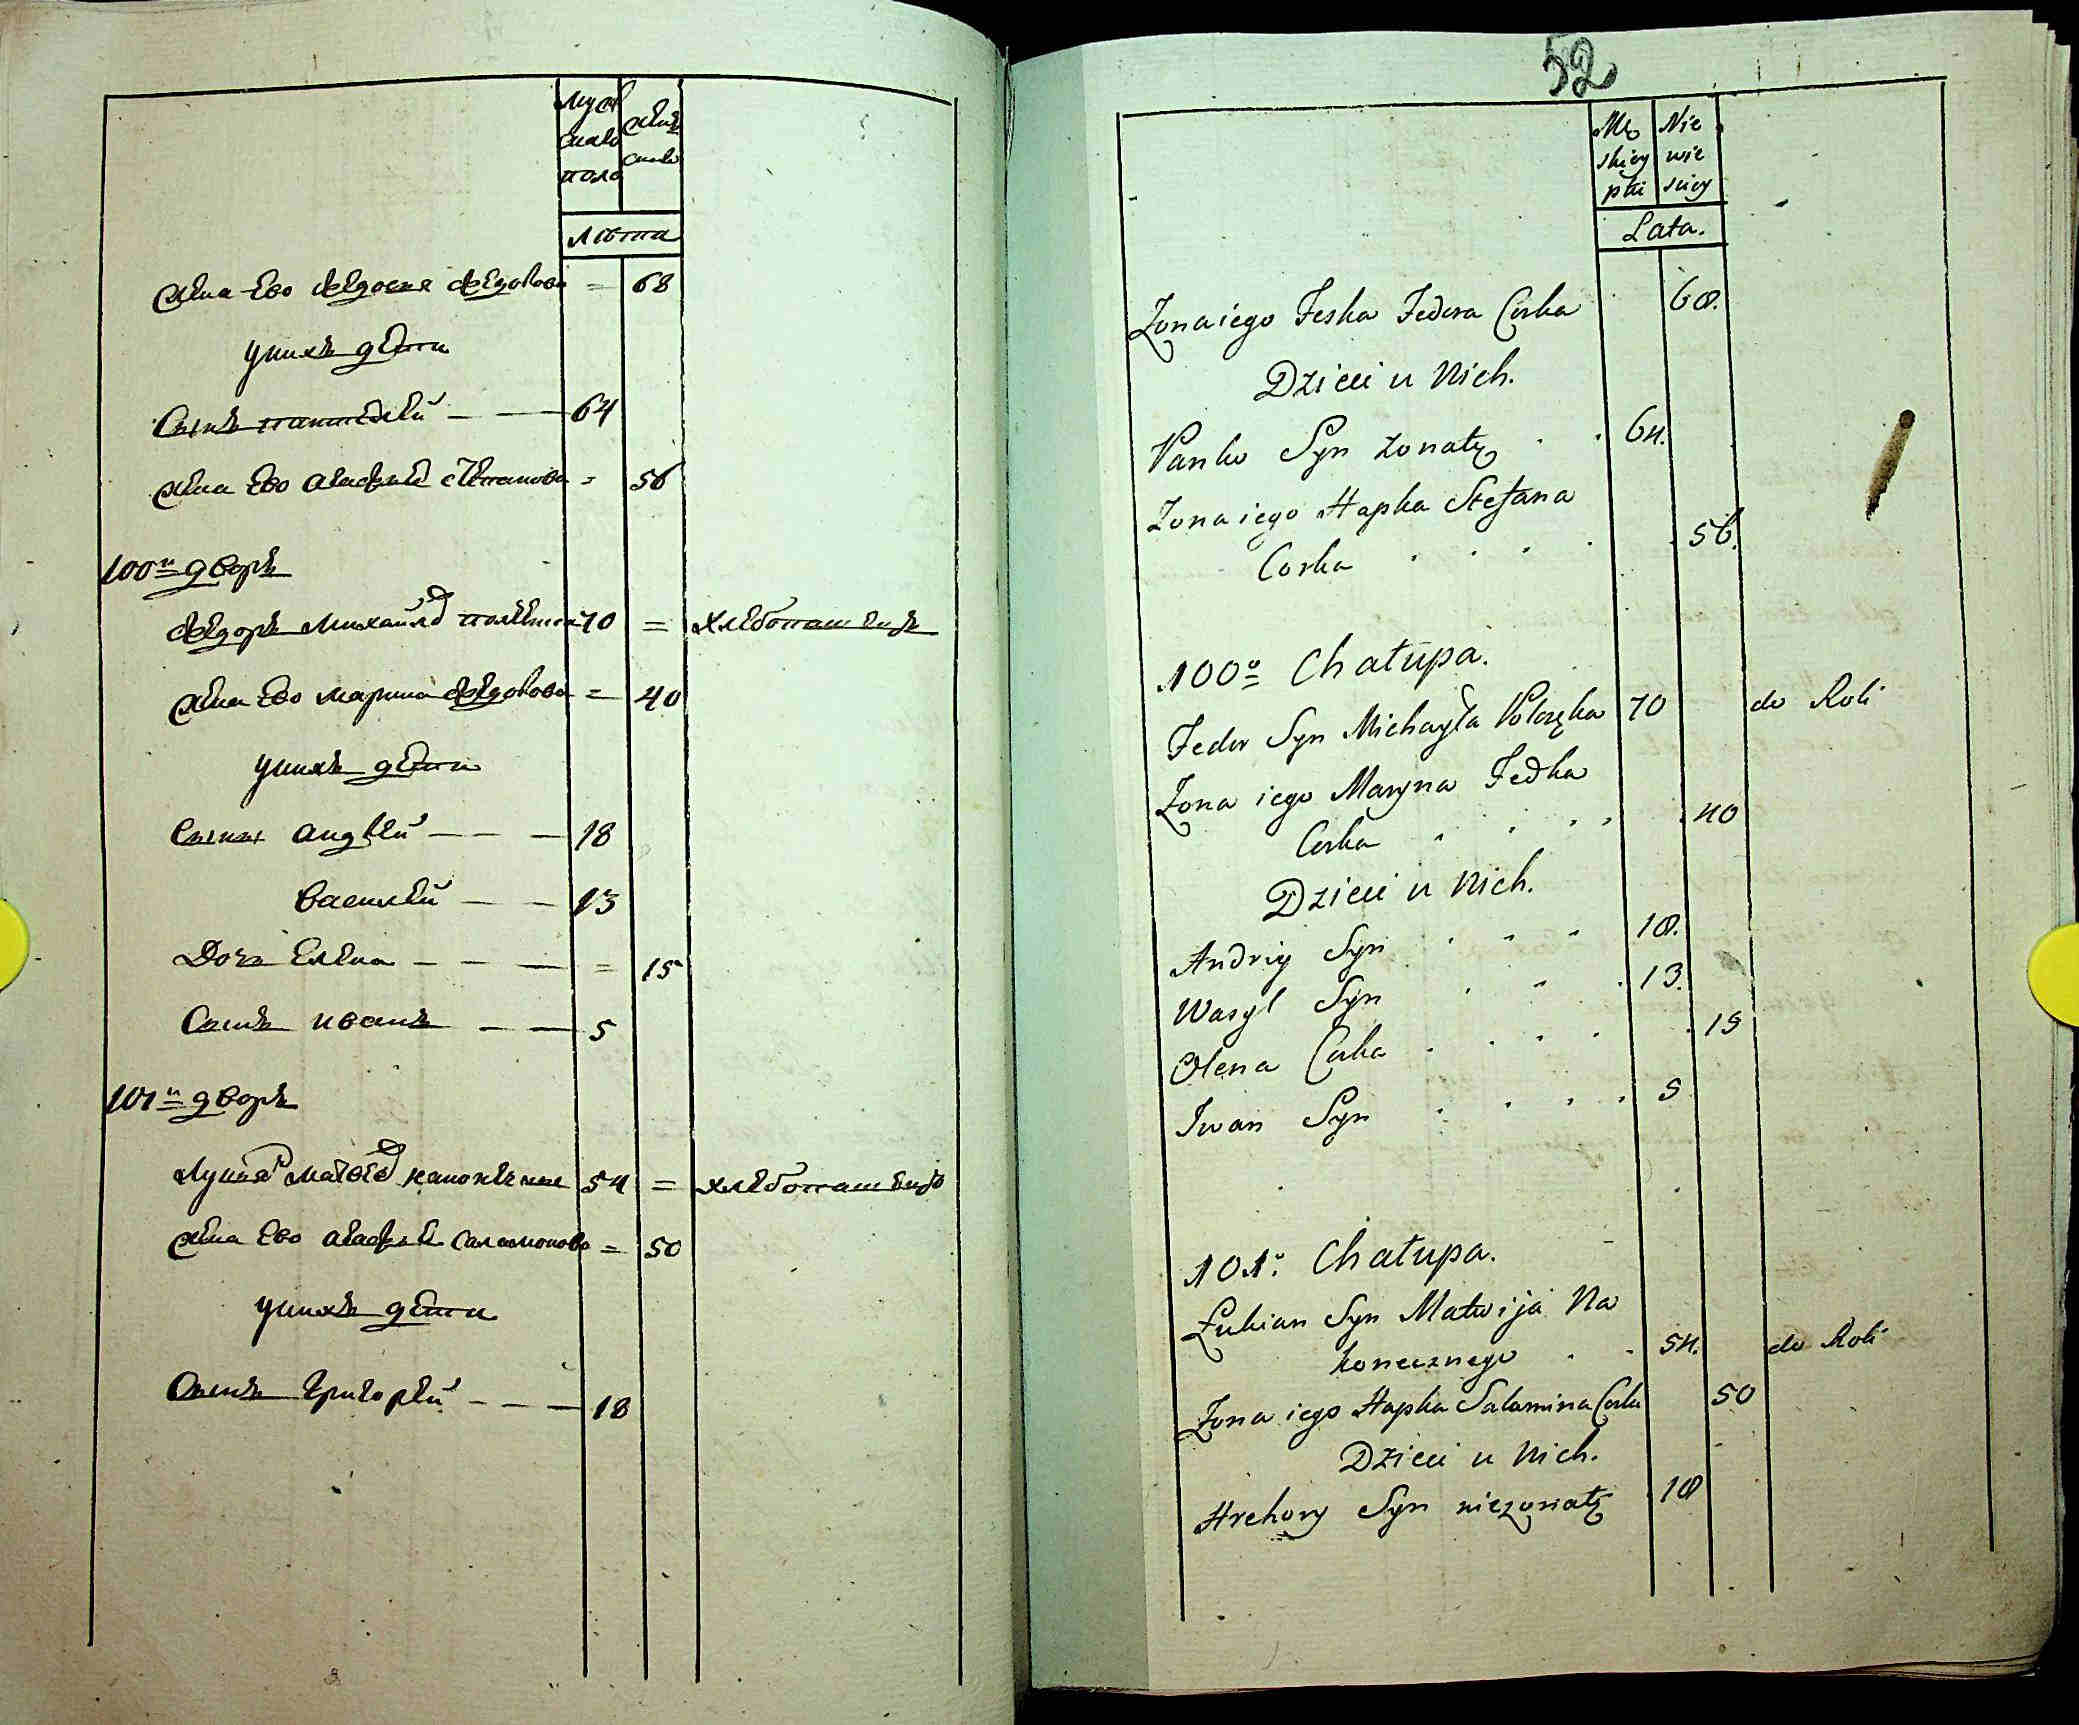 Муж
скаго
пола
жѣн
скаго
лѣта
жѣна Ево Ѳедосия Ѳедорова = 68
унихъ дѣти
Сынъ пантелѣй — — 64
жѣна Ево агафия стѣпанова = 56
100й дворъ
Ѳедоръ Михайлов 70 = хлебопашецъ
жѣна Ево марина Ѳедорова = 40
унихъ дѣти
Сыны андрѣй — — — 18
василѣй — — 13
Дочь Елѣна — — — = 15
Сынъ иванъ — — 5
101й дворъ
Лукиян Матвѣев 54 = хлебопашецъ
жѣна Ево агафия Саламонова = 50
унихъ дѣти
Сынъ Григорѣй — — — 18
52
Mę
skiey
płci
Nie
wie
sciey
Lata.
Zona iego Feska Fedora Corka 68.
Dzieci u Nich.
Panko Syn zonaty . . 64.
Zona iego Hapka Stefana
Corka . . . . . 56.
100o Chałupa.
Fedor Syn Michayła 70 do Roli
Zona iego Maryna Fedka
Corka . . . . . 40
Dzieci u Nich.
Andriy Syn . . . 18.
Wasyl Syn . . . 13.
Olena Corka . . . . . 15
Iwan Syn . . . . 5
101o. Chałupa.
Łukian Syn Matwija Na
konecznego . . 54. do Roli
Zona iego Hapka Salamina Corka 50
Dzieci u Nich.
Hrehory Syn niezonaty . 18